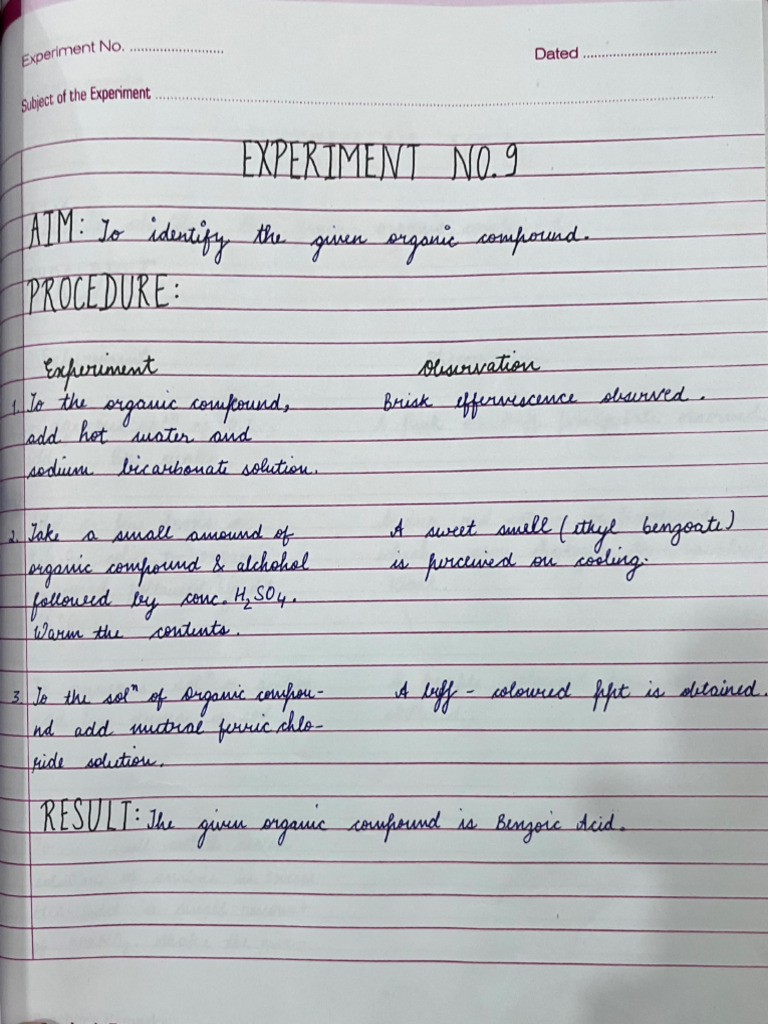 Experiment No. ........................
Dated ...................................
Subject of the Experiment ................................................................
EXPERIMENT NO. 9
AIM: To identify the given organic compound.
PROCEDURE:
Experiment Observation
1. To the organic compound, Brisk effervescence observed.
add hot water and
sodium bicarbonate solution.
2. Take a small amound of A sweet smell (ethyl benzoate)
organic compound & alchohol is perceived on cooling.
followed by conc. H₂SO₄.
Warm the contents.
3. To the solⁿ of organic compou- A buff - coloured ppt is obtained.
nd add nuetral ferric chlo-
ride solution.
RESULT: The given organic compound is Benzoic Acid.